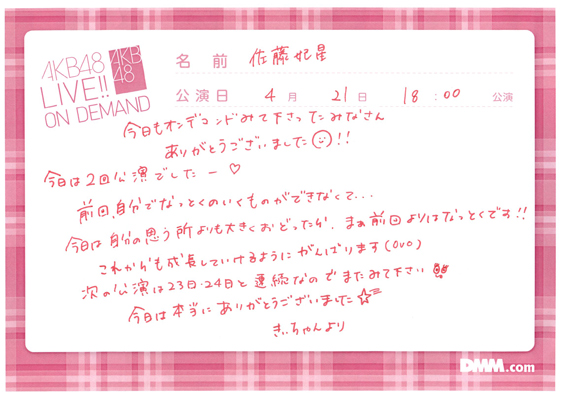 AKB48
LIVE!!
ON DEMAND
AKB
48
名前 佐藤妃星
公演日 4月 21日 18:00 公演
今日もオンデコンドみて下さったみなさん
ありがとうございました!!
今日は2回公演でしたー♡
前回、自分でなっとくのいくものができなくて...
今日は自分の思う所よりも大きくおどったから、まぁ前回よりはなっとくです!!
これからも成長していけるようにがんばります(OvO)
次の公演は23日・24日と連続なのでまたみて下さい
今日は本当にありがとうございました☆
きぃちゃんより
DMM.com